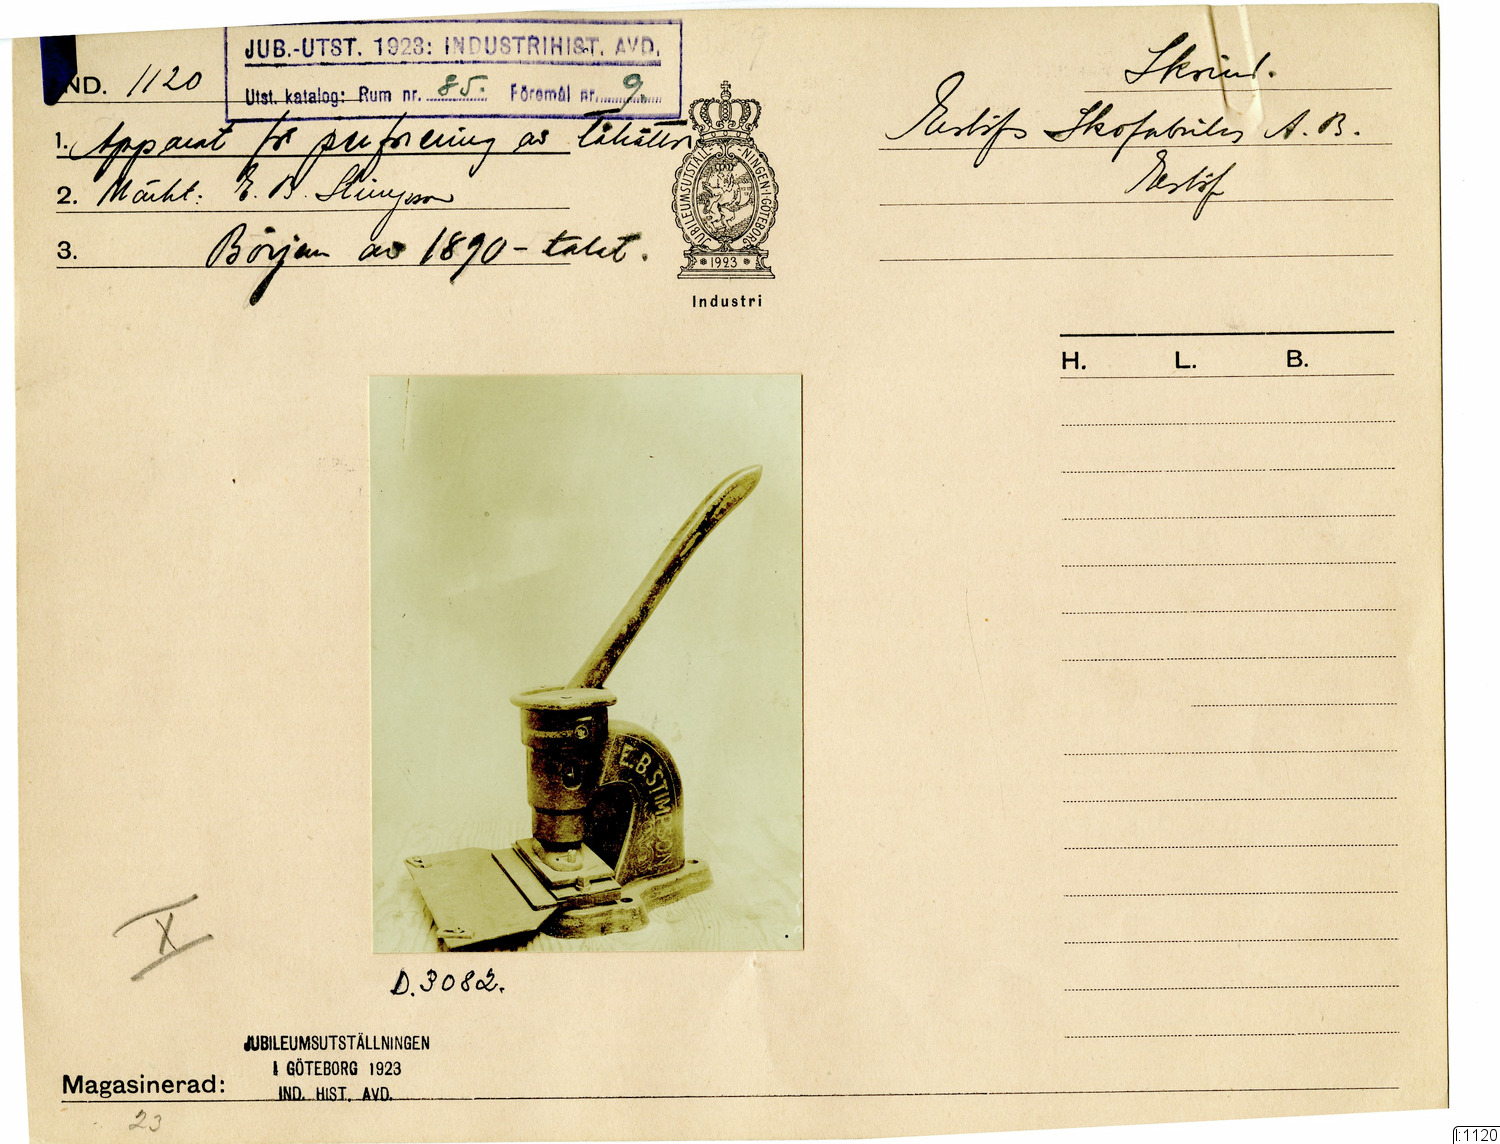 JUB.-UTST. 1923: INDUSTRIHIST. AVD.
Utst. katalog: Rum nr. 85. Föremål nr. 9.
IND. 1120
1. Apparat för perforering av tåhättor
2. Märkt: E. B. Stimpson
3. Början av 1890-talet.
JUBILEUMSUTSTÄLL-NINGEN·I·GÖTEBORG
1923
Industri
Skoind.
Eslöfs Skofabriks A. B.
Eslöf
H. L. B.
E.B.STIMPSON
D.3082.
X
JUBILEUMSUTSTÄLLNINGEN
I GÖTEBORG 1923
IND. HIST. AVD.
Magasinerad:
23
I:1120